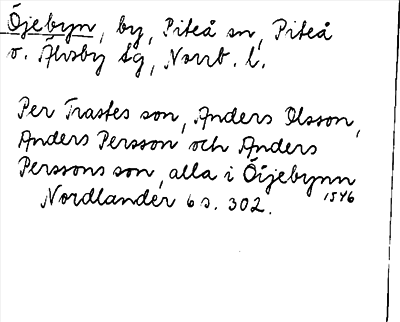 Öjebyn, by, Piteå sn, Piteå
o. Älvsby tg, Norrb. l.
Per Trastes son, Anders Olsson,
Anders Persson och Anders
Perssons son, alla i Öijebynn
1546
Nordlander 6 s. 302.